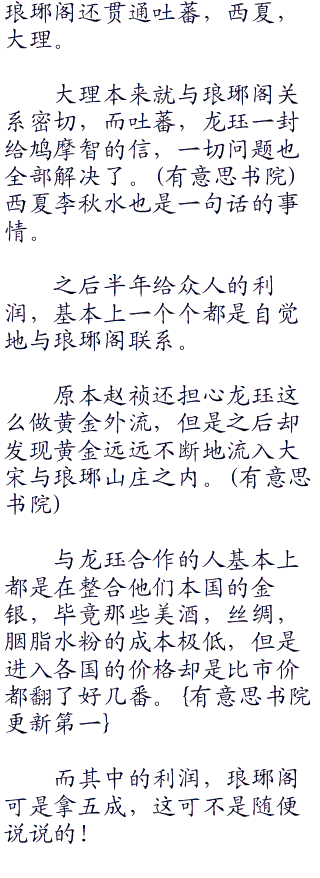 琅琊阁还贯通吐蕃，西夏，
大理。
大理本来就与琅琊阁关
系密切，而吐蕃，龙珏一封
给鸠摩智的信，一切问题也
全部解决了。(有意思书院)
西夏李秋水也是一句话的事
情。
之后半年给众人的利
润，基本上一个个都是自觉
地与琅琊阁联系。
原本赵祯还担心龙珏这
么做黄金外流，但是之后却
发现黄金远远不断地流入大
宋与琅琊山庄之内。(有意思
书院)
与龙珏合作的人基本上
都是在整合他们本国的金
银，毕竟那些美酒，丝绸，
胭脂水粉的成本极低，但是
进入各国的价格却是比市价
都翻了好几番。{有意思书院
更新第一}
而其中的利润，琅琊阁
可是拿五成，这可不是随便
说说的！